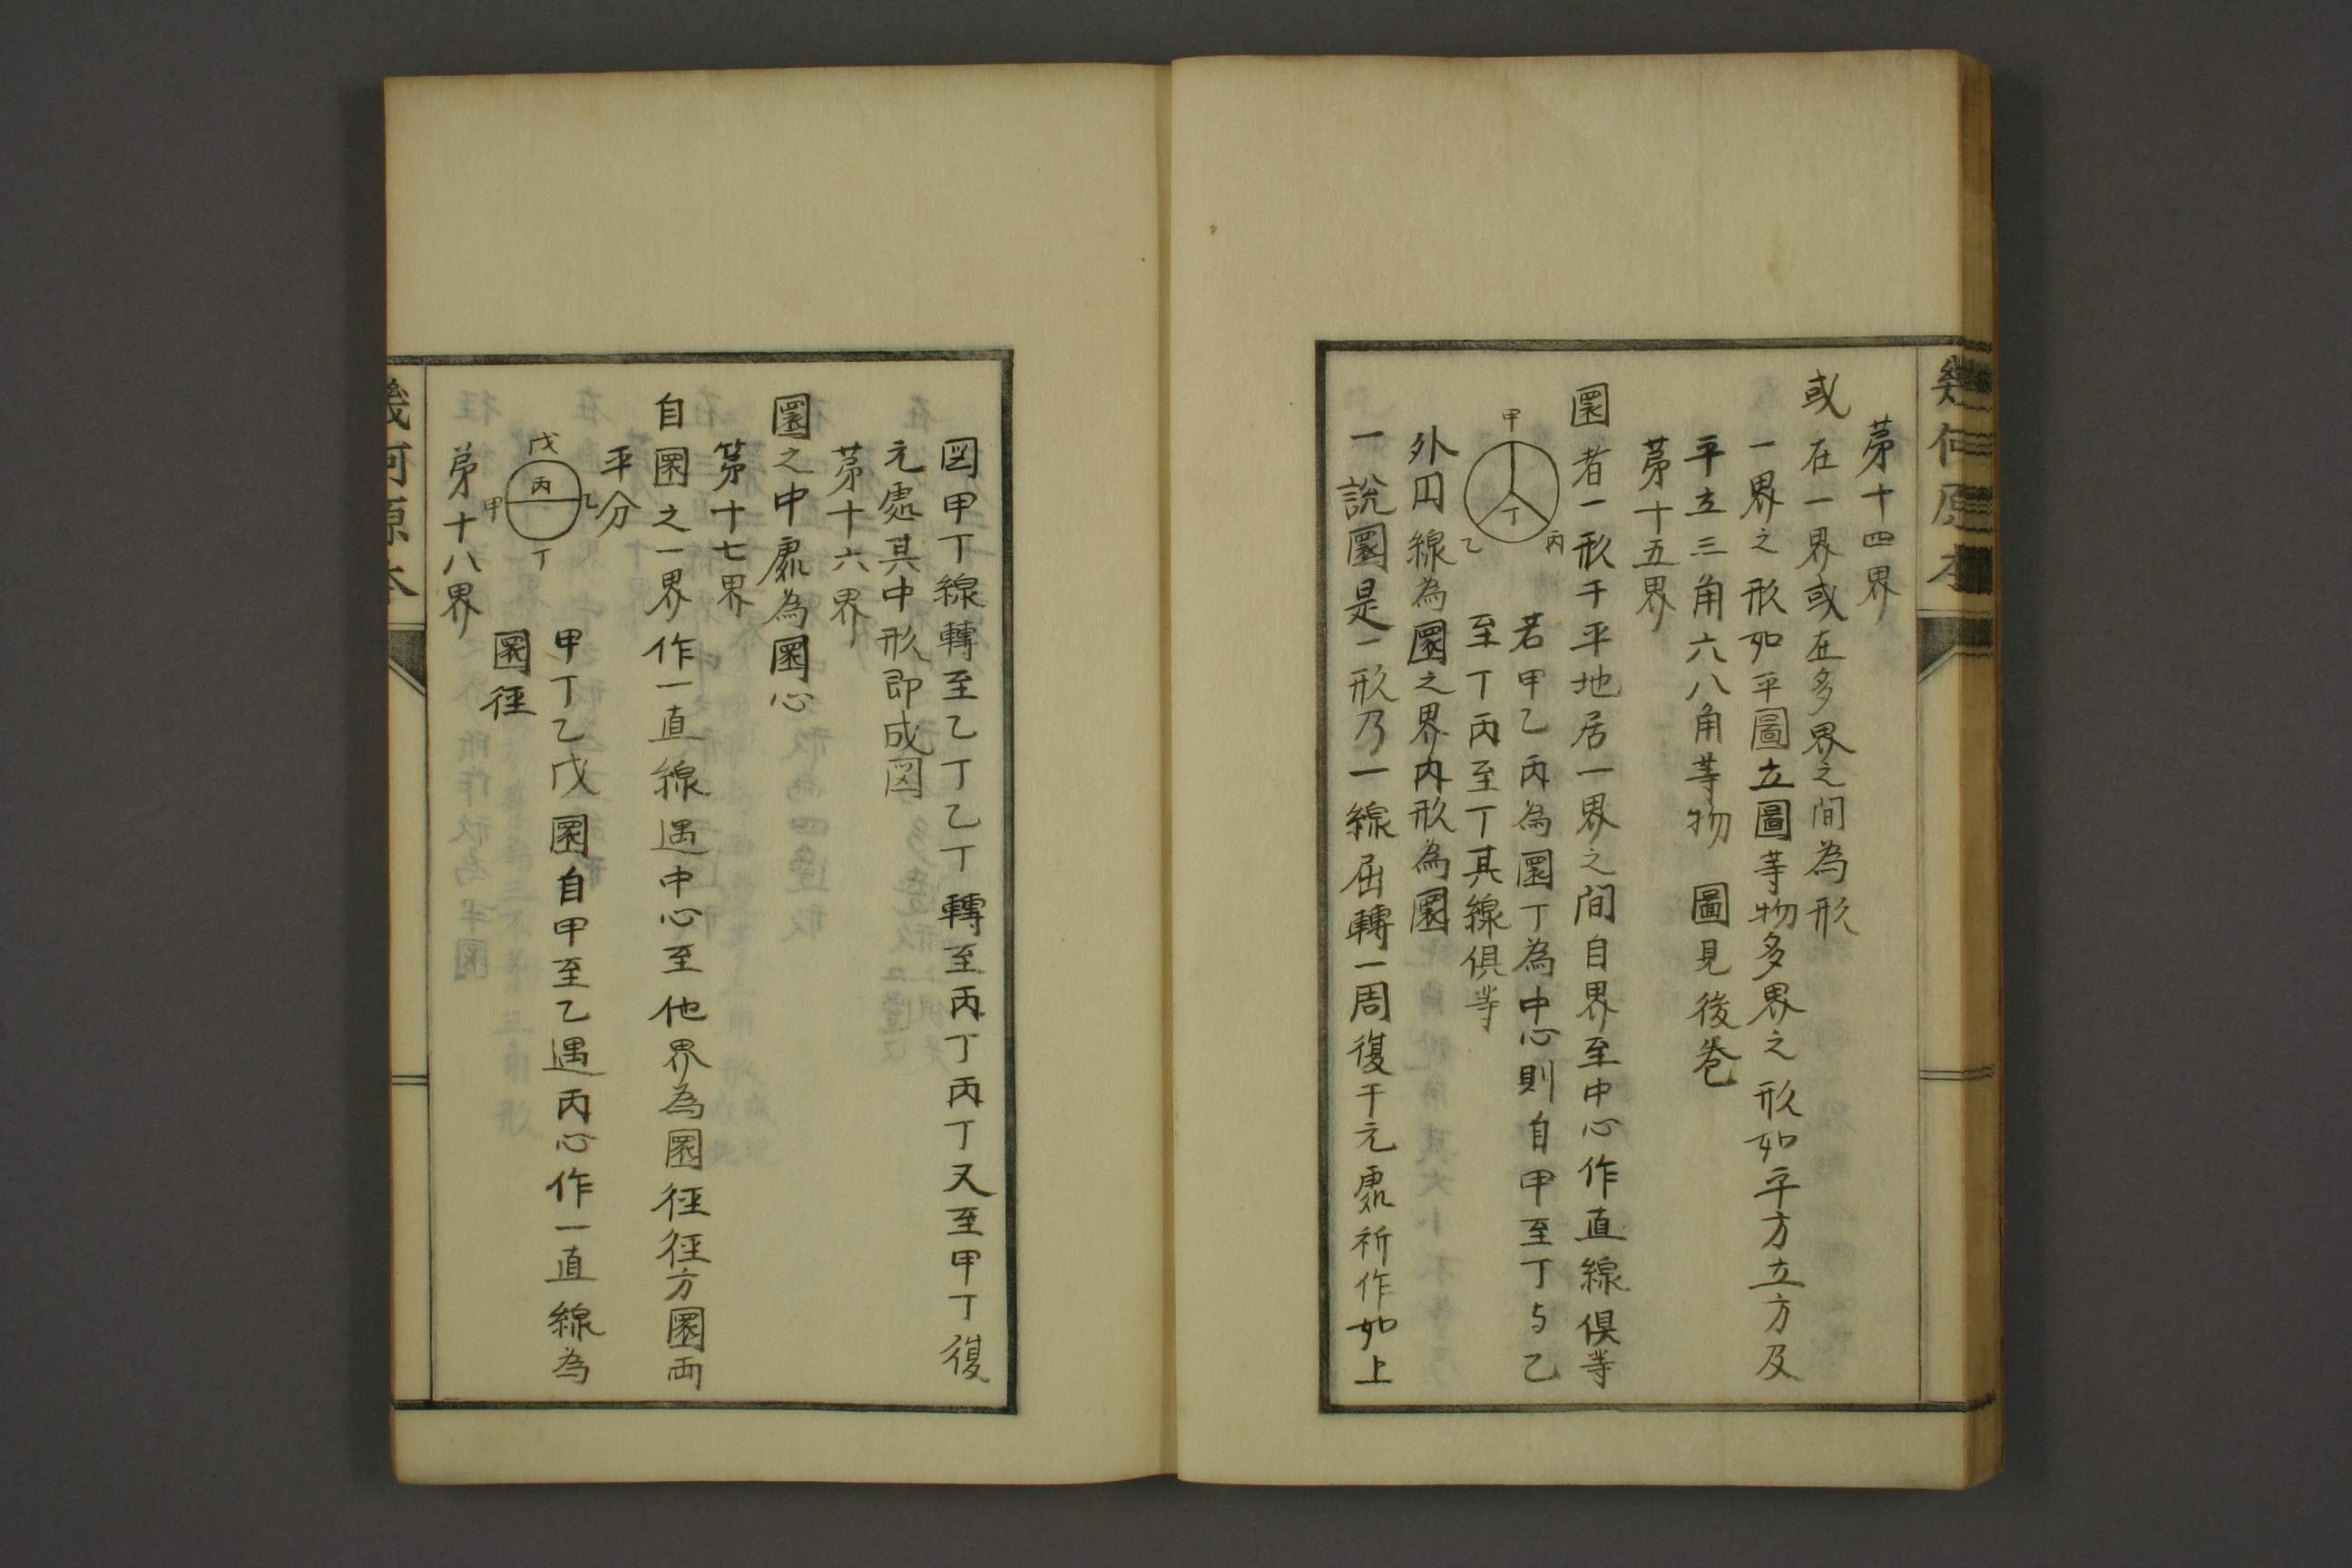 幾何原本
第十四界
或在一界或在多界之間為形
一界之形如平圜立圜等物多界之形如平方立方及
平立三角六八角等物 圖見後卷
第十五界
圜者一形于平地居一界之間自界至中心作直線俱等
甲
乙
丙
丁
若甲乙丙為圜丁為中心則自甲至丁与乙
至丁丙至丁其線俱等
外円線為圜之界內形為圜
一說圜是一形乃一線屈轉一周復于元處所作如上
図甲丁線轉至乙丁乙丁轉至丙丁丙丁又至甲丁復
元處其中形即成図
第十六界
圜之中處為圜心
第十七界
自圜之一界作一直線過中心至他界為圜徑徑方圜兩
平分
戊
丙
甲
乙
丁
甲丁乙戊圜自甲至乙過丙心作一直線為
圜徑
第十八界
幾何原本